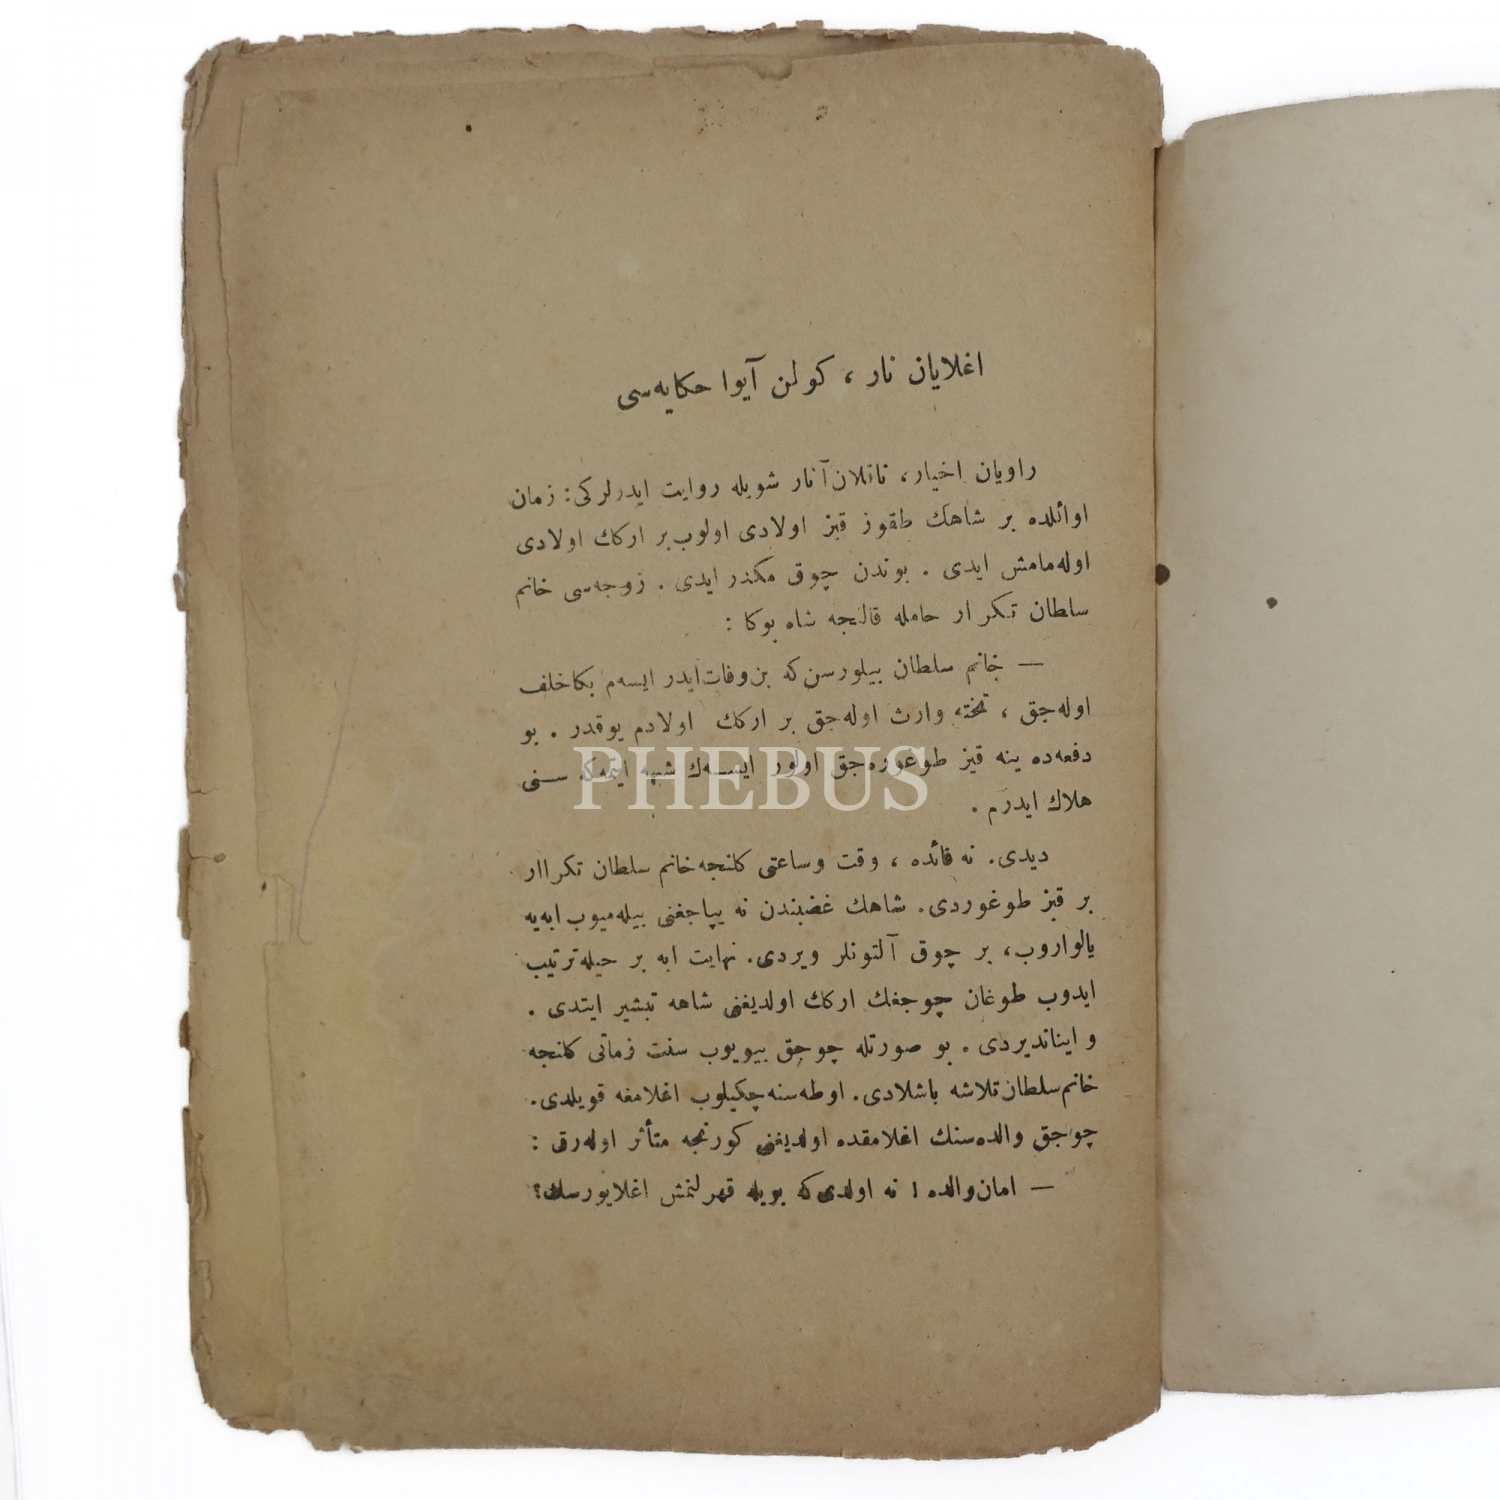 اغلايان نار ، كولن آيوا حكايه‌سى
راويان اخيار، ناقلان آثار شويله روايت ايدرلركى: زمان
اوائلده بر شاهك طقوز قيز اولادى اولوب بر اركك اولادى
اوله‌مامش ايدى . بوندن چوق مكدر ايدى . زوجه‌سى خانم
سلطان تكرار حامله قالنجه شاه بوكا :
— خانم سلطان بيلورسن كه بن وفات ايدر ايسه‌م بكا خلف
اوله‌جق ، تخته وارث اوله‌جق بر اركك اولادم يوقدر . بو
دفعه‌ده ينه قيز طوغوره‌جق اولور ايسه‌ك شبهه ايتمه كه سنى
هلاك ايدرم .
ديدى. نه فائده ، وقت وساعتى كلنجه خانم سلطان تكراار
بر قيز طوغوردى. شاهك غضبندن نه يپاجغنى بيله‌ميوب ابه‌يه
يالواروب، بر چوق آلتونلر ويردى. نهايت ابه بر حيله ترتيب
ايدوب طوغان چوجغك اركك اولديغنى شاهه تبشير ايتدى .
و ايناندیردى . بو صورتله چوجق بيويوب سنت زمانى كلنجه
خانم سلطان تلاشه باشلادى. اوطه‌سنه چكيلوب اغلامغه قويلدى.
چوجق والده‌سنك اغلامقده اولديغنى كورنجه متأثر اوله‌رق :
— امان والده ! نه اولدى كه بويله قهرلنمش اغلايورسك؟
PHEBUS